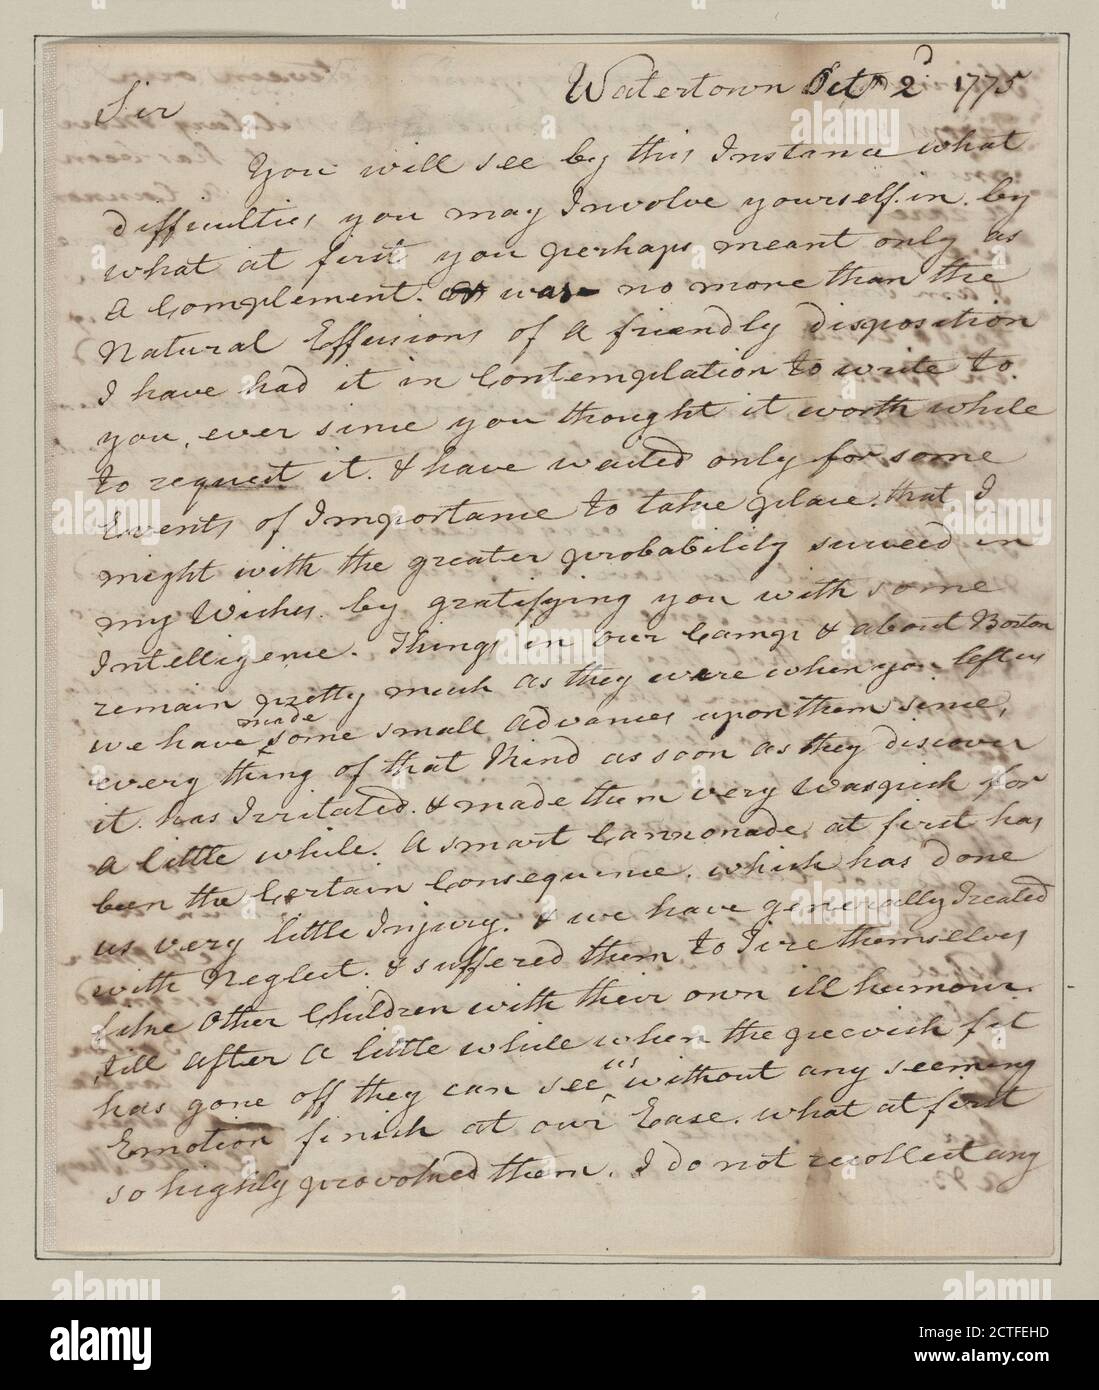 Watertown Octr 2d 1775
Sir
You will see by this Instance what
difficulties you may Involve yourself in by
what at first you perhaps meant only as
a Complement. or was no more than the
Natural Effusions of a friendly disposition
I have had it in Contemplation to write to
you, ever since you thought it worth while
to request it. & have waited only for some
Events of Importance to take place. that I
might with the greater probability succeed in
my Wishes. by gratifying you with some
Intelligence. Things in our Camp & about Boston
remain pretty much as they were when you left us
we have made some small advances upon them since,
every thing of that kind as soon as they discover
it. has Irritated. & made them very Waspish for
a little while. A smart Cannonade, at first has
been the Certain Consequence. which has done
us very little Injury. & we have generally Treated
with Neglect. & suffered them to Tire themselves
like other Children with their own ill humour.
till after a little while when the peevish fit
has gone off they can see us without any seeming
Emotion finish at our Ease. what at first
so highly provoked them. I do not recollect any
alamy
Image ID: 2CTFEHD
www.alamy.com